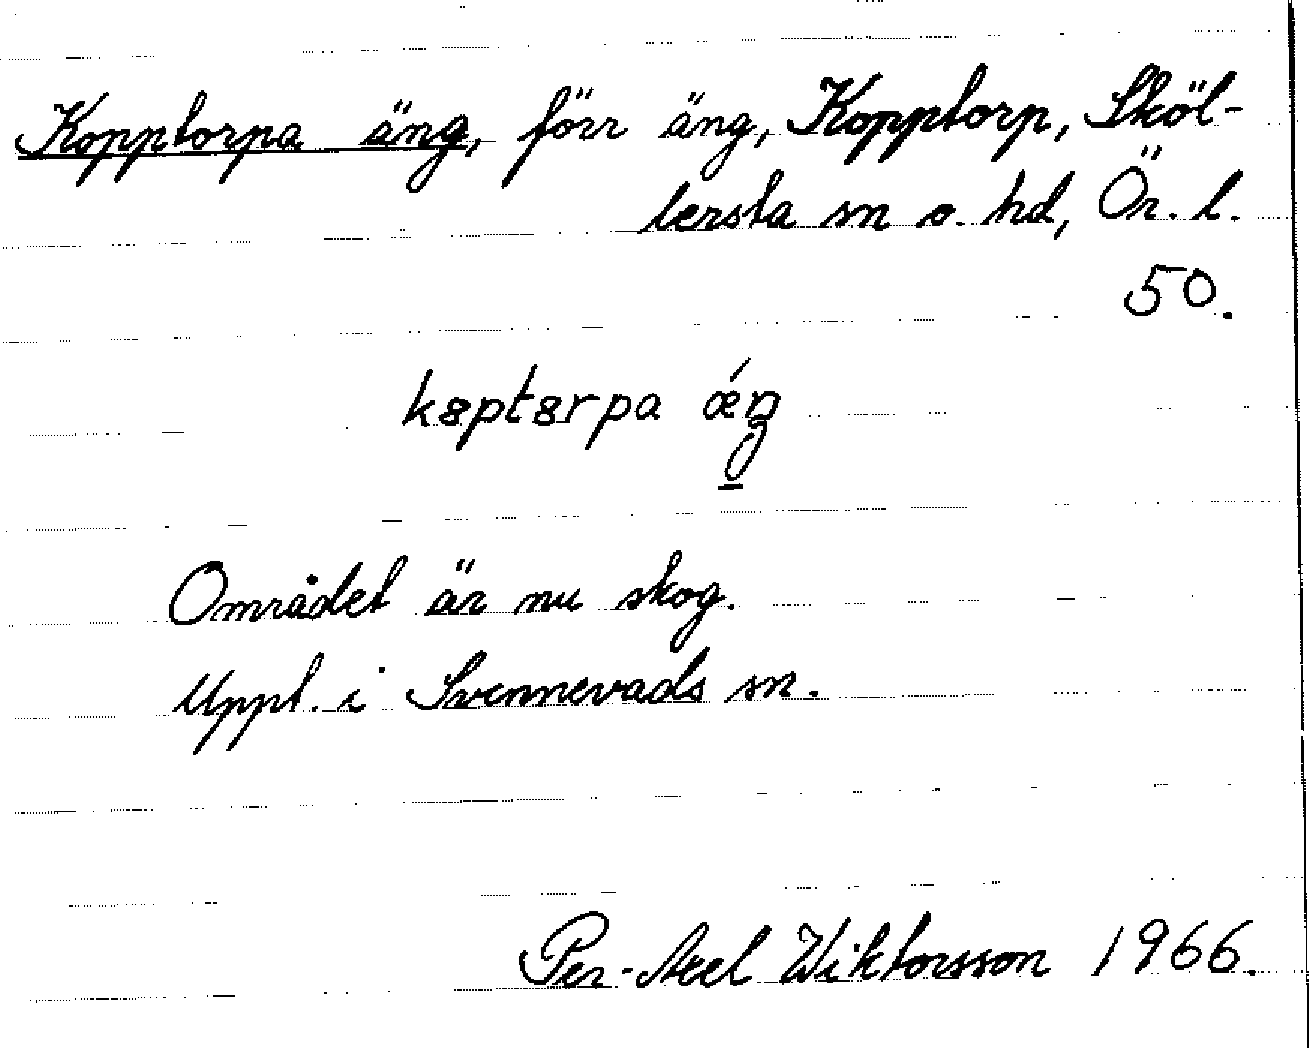 Kopptorpa äng, förr äng, Kopptorp, Sköl-
lersta sn o. hd, Ör. l.
50.
k8pt8rpa ǽŋ
Området är nu skog.
Uppt. i Svennevads sn.
Per-Axel Wiktorsson 1966.